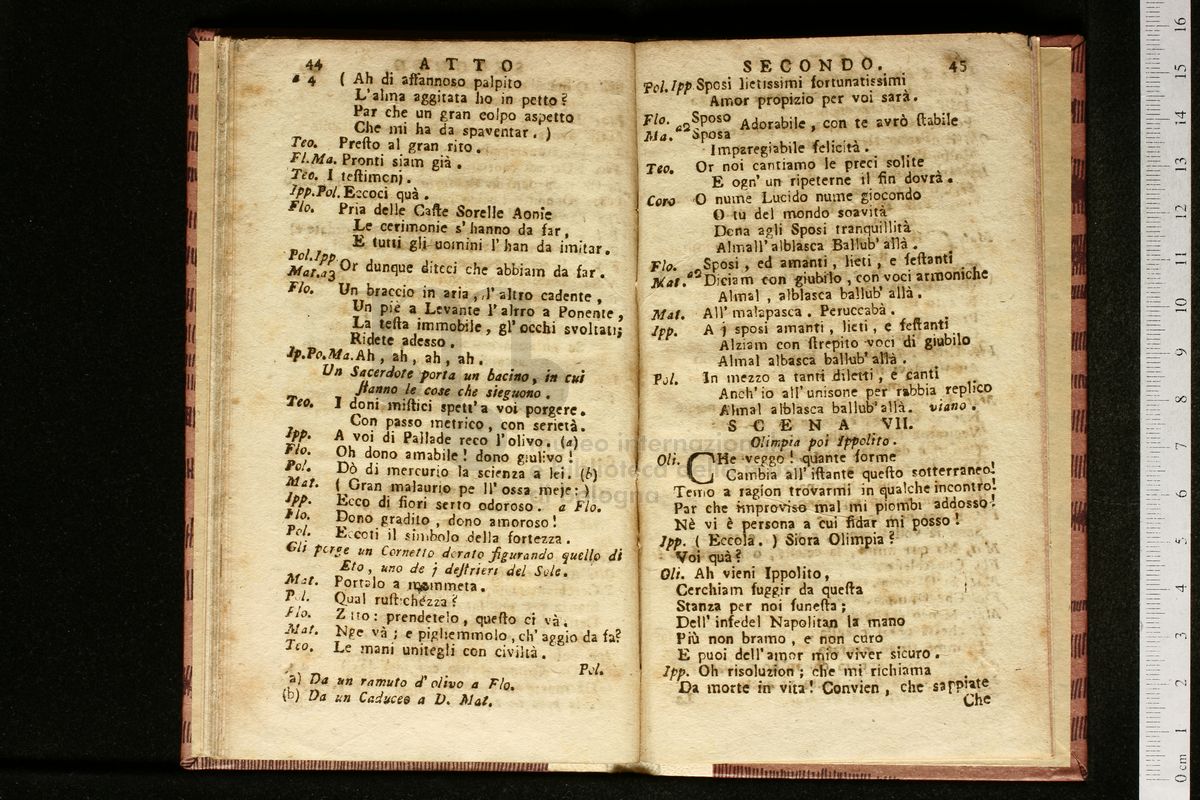 44 ATTO
a 4 ( Ah di affannoso palpito
L'alma aggitata ho in petto?
Par che un gran colpo aspetto
Che mi ha da spaventar. )
Teo. Preſto al gran rito.
Fl.Ma. Pronti siam già.
Teo. I teſtimonj.
Ipp.Pol. Eccoci quà.
Flo. Pria delle Caſte Sorelle Aonie
Le cerimonie s'hanno da far,
E tutti gli uomini l'han da imitar.
Pol.Ipp
Mat.a3 Or dunque diteci che abbiam da far.
Flo. Un braccio in aria, l'altro cadente,
Un piè a Levante l'altro a Ponente,
La teſta immobile, gl'occhi svoltati;
Ridete adesso.
Ip.Po.Ma. Ah, ah, ah, ah.
Un Sacerdote porta un bacino, in cui
ſtanno le cose che sieguono.
Teo. I doni miſtici spett'a voi porgere.
Con passo metrico, con serietà.
Ipp. A voi di Pallade reco l'olivo. (a)
Flo. Oh dono amabile! dono giulivo!
Pol. Dò di mercurio la scienza a lei. (b)
Mat. ( Gran malaurio pe ll'ossa meje: )
Ipp. Ecco di fiori serto odoroso. a Flo.
Flo. Dono gradito, dono amoroso!
Pol. Eccoti il simbolo della fortezza.
Gli porge un Cornetto dorato figurando quello di
Eto, uno de j deſtrieri del Sole.
Mat. Portalo a mammeta.
Pol. Qual ruſtichezza?
Flo. Zitto: prendetelo, queſto ci và.
Mat. Nge và; e pigliemmolo, ch'aggio da fa?
Teo. Le mani unitegli con civiltà.
Pol.
a) Da un ramuto d'olivo a Flo.
(b) Da un Caduceo a D. Mat.
SECONDO. 45
Pol.Ipp Sposi lietissimi fortunatissimi
Amor propizio per voi sarà.
Flo. Sposo
Ma. a2 Sposa Adorabile, con te avrò ſtabile
Impareggiabile felicità.
Teo. Or noi cantiamo le preci solite
E ogn'un ripeterne il fin dovrà.
Coro O nume Lucido nume giocondo
O tu del mondo soavità
Dona agli Sposi tranquillità
Almall'alblasca Ballub'allà.
Flo. Sposi, ed amanti, lieti, e feſtanti
Mat. a2 Diciam con giubilo, con voci armoniche
Almal, alblasca ballub'allà.
Mat. All'malapasca. Peruccabà.
Ipp. A j sposi amanti, lieti, e feſtanti
Alziam con ſtrepito voci di giubilo
Almal albasca ballub'allà.
Pol. In mezzo a tanti diletti, e canti
Anch'io all'unisone per rabbia replico
Almal alblasca ballub'allà. viano.
SCENA VII.
Olimpia poi Ippolito.
Oli. CHe veggo! quante forme
Cambia all'iſtante queſto sotterraneo!
Temo a ragion trovarmi in qualche incontro!
Par che improviso mal mi piombi addosso!
Nè vi è persona a cui fidar mi posso!
Ipp. ( Eccola. ) Siora Olimpia?
Voi quà?
Oli. Ah vieni Ippolito,
Cerchiam fuggir da queſta
Stanza per noi funeſta;
Dell'infedel Napolitan la mano
Più non bramo, e non curo
E puoi dell'amor mio viver sicuro.
Ipp. Oh risoluzion; che mi richiama
Da morte in vita! Convien, che sappiate
Che